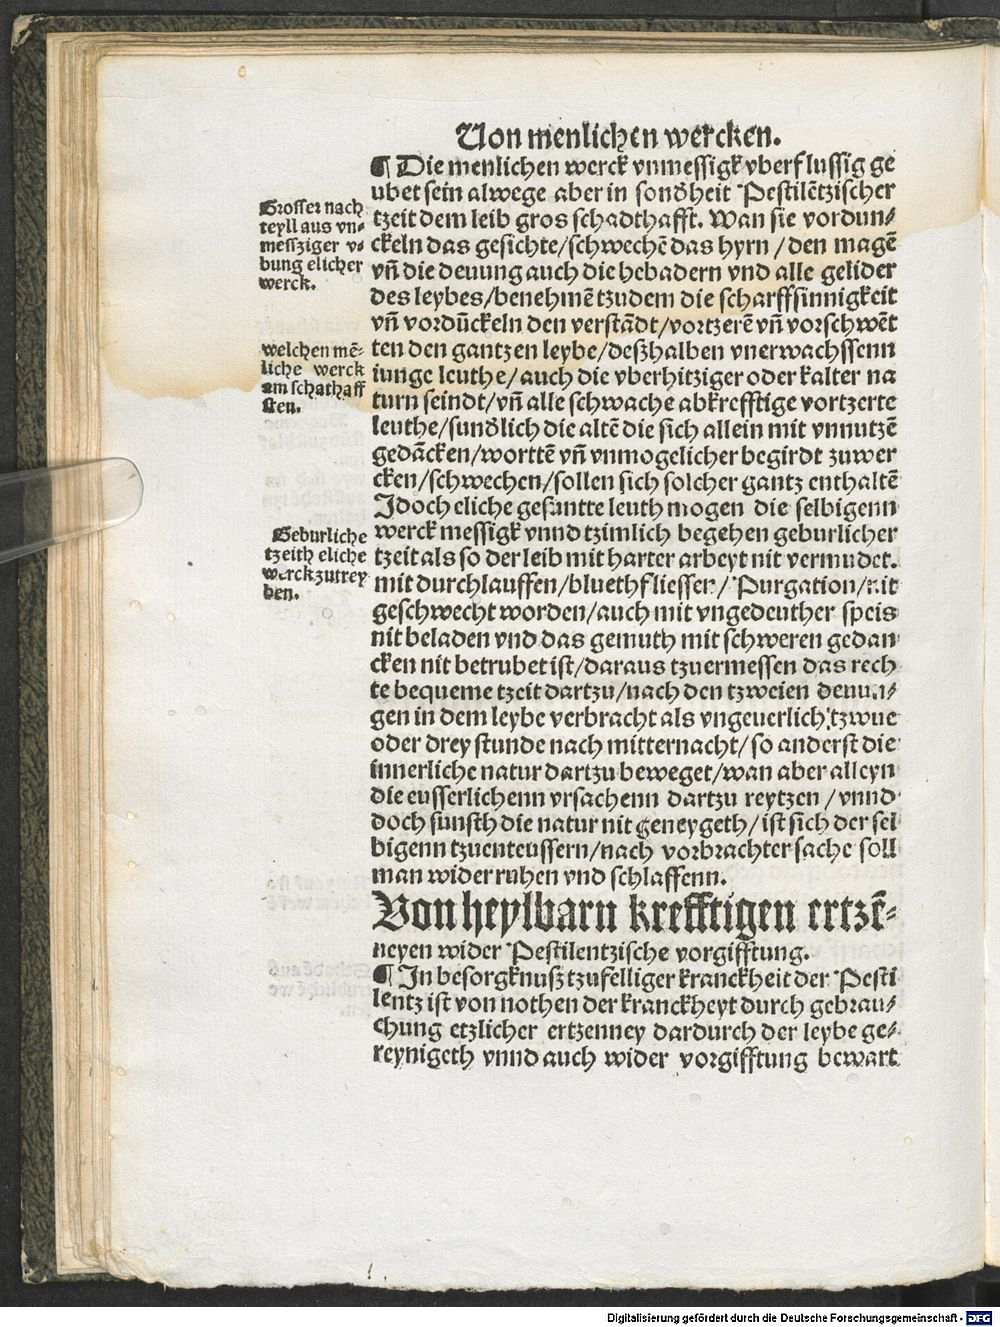 Von menlichen wercken.
¶ Die menlichen werck vnmessigk vberflussig ge
ubet sein alwege aber in sond̄heit Pestilētzischer
tzeit dem leib gros schadthafft. Wan sie vordun⸗
ckeln das gesichte/schwechē das hyrn/den magē
vn̄ die deuung auch die hebadern vnd alle gelider
des leybes/benehmē tzudem die scharffsinnigkeit
vn̄ vordūckeln den verstādt/vortzerē vn̄ vorschwēt
ten den gantzen leybe/deßhalben vnerwachssenn
iunge leuthe/auch die vberhitziger oder kalter na
turn seindt/vn̄ alle schwache abkrefftige vortzerte
leuthe/sund̄lich die altē die sich allein mit vnnutzē
gedācken/worttē vn̄ vnmogelicher begirdt zuwer
cken/schwechen/sollen sich solcher gantz enthaltē
Jdoch eliche gesuntte leuth mogen die selbigenn
werck messigk vnnd tzimlich begehen geburlicher
tzeit als so der leib mit harter arbeyt nit vermudet.
mit durchlauffen/bluethfliessen/Purgation/nit
geschwecht worden/auch mit vngedeuther speis
nit beladen vnd das gemuth mit schweren gedan
cken nit betrubet ist/daraus tzuermessen das rech
te bequeme tzeit dartzu/nach den tzweien deuun⸗
gen in dem leybe verbracht als vngeuerlich tzwue
oder drey stunde nach mitternacht/so anderst die
innerliche natur dartzu beweget/wan aber alleyn
die eusserlichenn vrsachenn dartzu reytzen/vnnd
doch sunsth die natur nit geneygeth/ist sich der sel
bigenn tzuenteussern/nach vorbrachter sache soll
man wider ruhen vnd schlaffenn.
Von heylbarn krefftigen ertzē⸗
neyen wider Pestilentzische vorgifftung.
¶ Jn besorgknuß tzufelliger kranckheit der Pesti
lentz ist von nothen der kranckheyt durch gebrau⸗
chung etzlicher ertzenney dardurch der leybe ge⸗
reynigeth vnnd auch wider vorgifftung bewart
Grosser nach
teyll aus vn⸗
messziger v⸗
bung elicher
werck.
welchen mē⸗
liche werck
am schathaff
sten.
Geburliche
tzeith eliche
werck zutrey
ben.
Digitalisierung gefördert durch die Deutsche Forschungsgemeinschaft - DFG